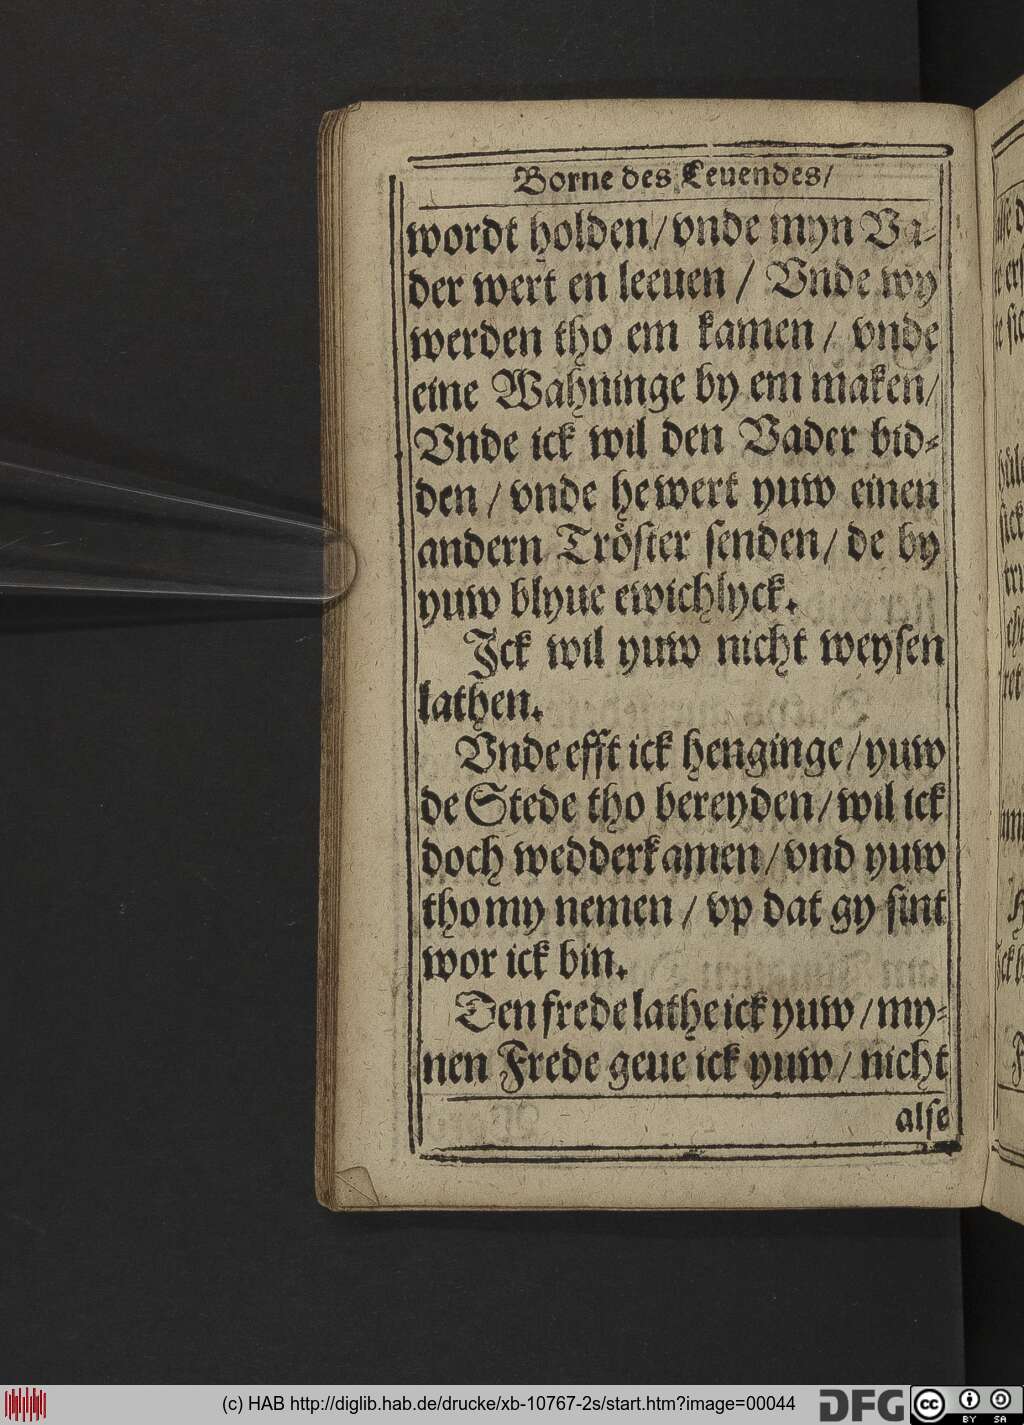 Borne des Leuendes/
wordt holden/ vnde myn Va-
der wert en leeuen / Vnde wy
werden tho em kamen/ vnde
eine Wahninge by em maken/
Vnde ick wil den Vader bid-
den/ vnde he wert yuw einen
andern Tröster senden/ de by
yuw blyue ewichlyck.
Ick wil yuw nicht weysen
lathen.
Vnde efft ick henginge/ yuw
de Stede tho bereyden/ wil ick
doch wedderkamen/ vnd yuw
tho my nemen / vp dat gy sint
wor ick bin.
Den frede lathe ick yuw / my-
nen Frede geue ick yuw/ nicht
alse
(c) HAB http://diglib.hab.de/drucke/xb-10767-2s/start.htm?image=00044
DFG
cc
BY SA